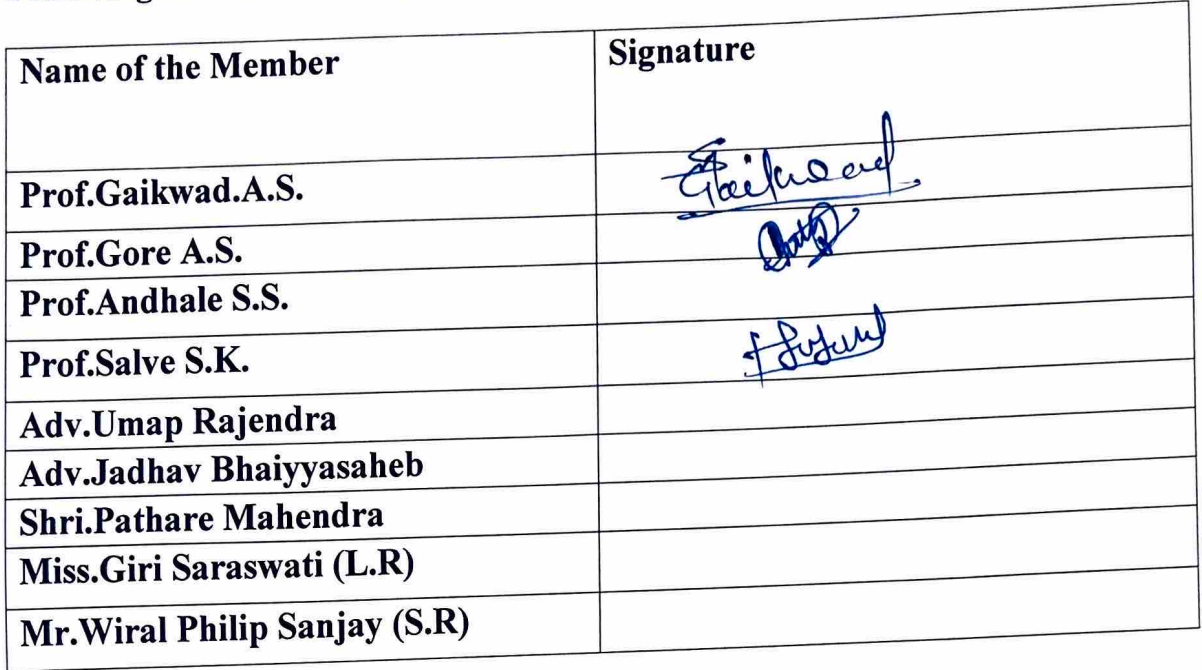 Name of the Member Signature
Prof.Gaikwad.A.S. Gaikwad
Prof.Gore A.S.
Prof.Andhale S.S.
Prof.Salve S.K.
Adv.Umap Rajendra
Adv.Jadhav Bhaiyyasaheb
Shri.Pathare Mahendra
Miss.Giri Saraswati (L.R)
Mr.Wiral Philip Sanjay (S.R)